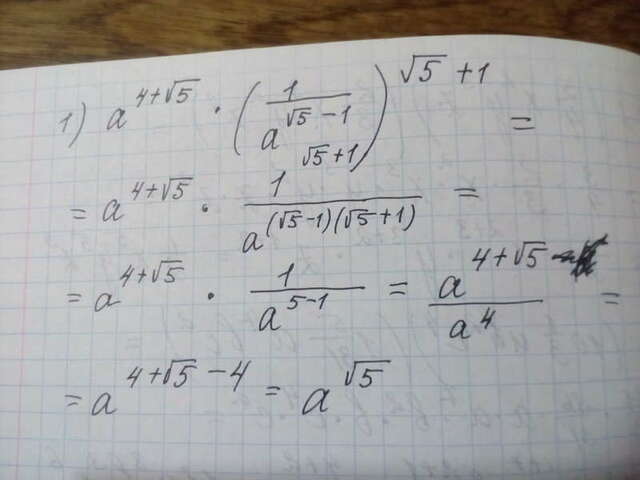 1) a^{4+√5} · (1/a^{√5-1})^{√5+1} =
√5+1
= a^{4+√5} · 1/a^{(√5-1)(√5+1)} =
= a^{4+√5} · 1/a^{5-1} = a^{4+√5}/a^4 =
= a^{4+√5-4} = a^{√5}